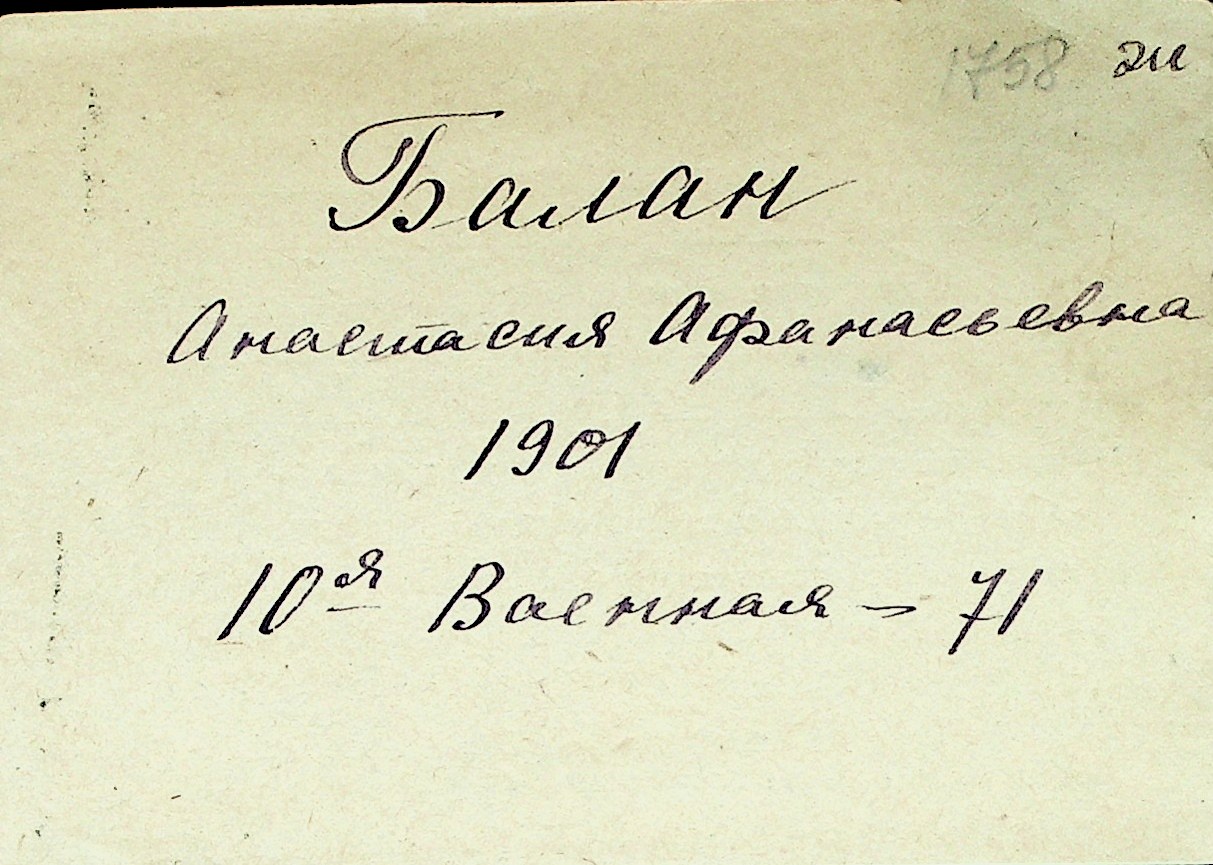 1758 ги
Балан
Анастасия Афанасьевна
1901
10ая Военная - 71